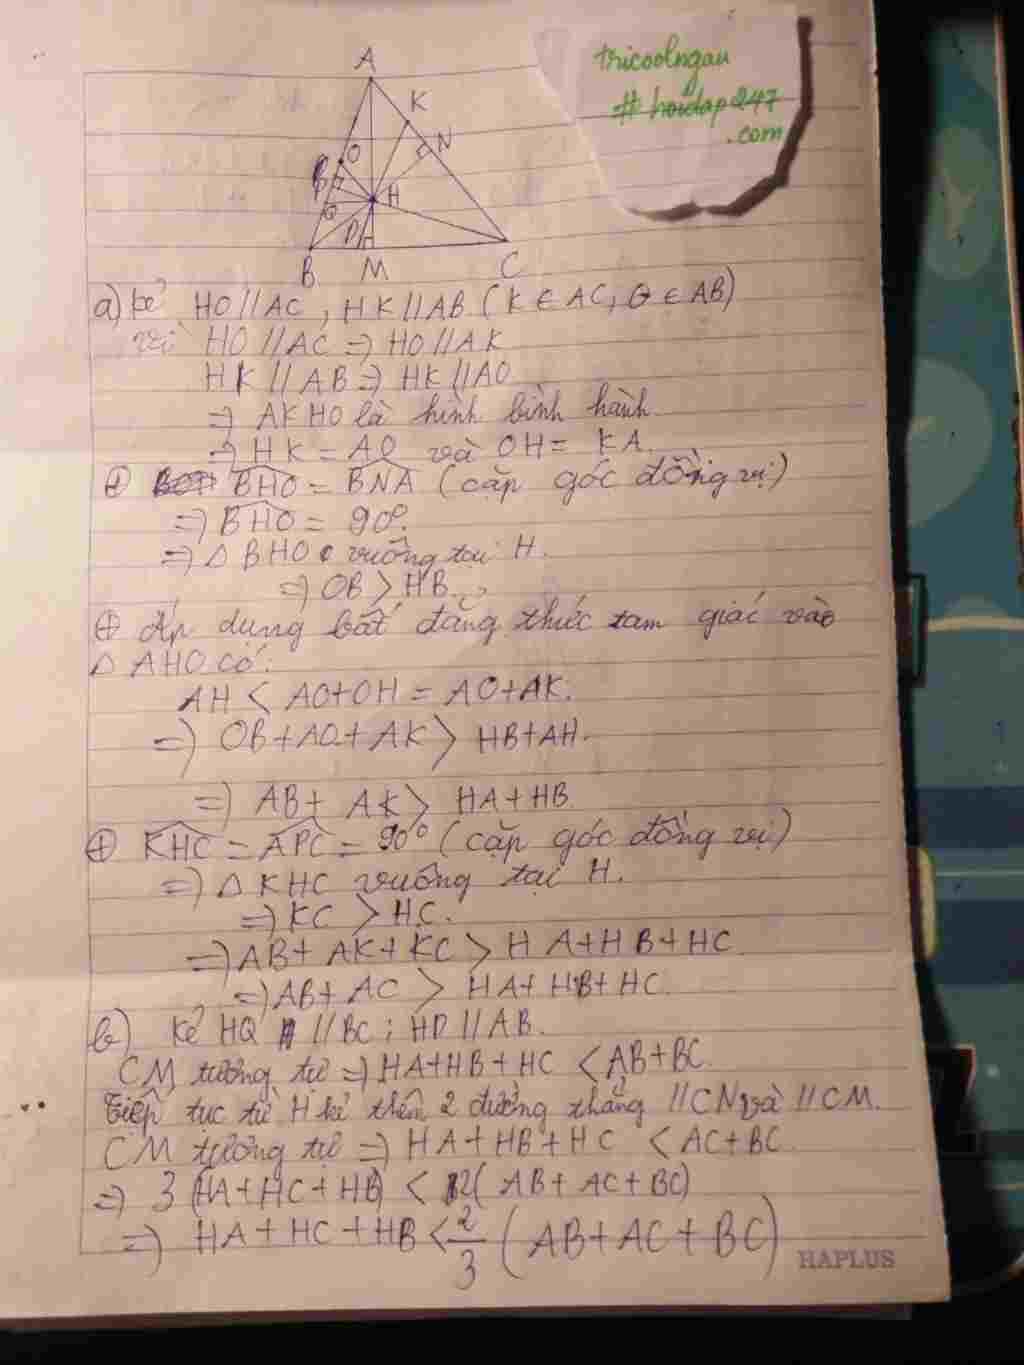 tricoolngau
# hoidap247
.com
A
K
N
O
P
H
Q
D
B M C
a) kẻ HO // AC, HK // AB (K ∈ AC, O ∈ AB)
vì HO // AC ⇒ HO // AK
HK // AB ⇒ HK // AO
⇒ AKHO là hình bình hành
⇒ HK = AO và OH = KA.
+ BHO = BNA (cặp góc đồng vị)
⇒ BHO = 90°.
⇒ △ BHO vuông tại H.
⇒ OB > HB.
⊕ Áp dụng bất đẳng thức tam giác vào
△ AHO có:
AH < AO+OH = AO+AK.
⇒ OB+AO+AK > HB+AH.
⇒ AB+ AK > HA+HB
⊕ KHC = APC = 90° (cặp góc đồng vị)
⇒ △ KHC vuông tại H.
⇒ KC > HC.
⇒ AB+ AK+ KC > HA+HB+HC
⇒ AB+ AC > HA+ HB+ HC.
b) Kẻ HQ // BC ; HD // AB.
CM tương tự ⇒ HA+HB+HC < AB+BC.
Tiếp tục từ H kẻ thêm 2 đường thẳng // CN và // CM.
CM tương tự ⇒ HA+HB+HC < AC+BC
⇒ 3 (HA+HC+HB) < 2( AB+AC+BC)
⇒ HA+HC+HB < 2/3 ( AB+AC+BC)
HAPLUS